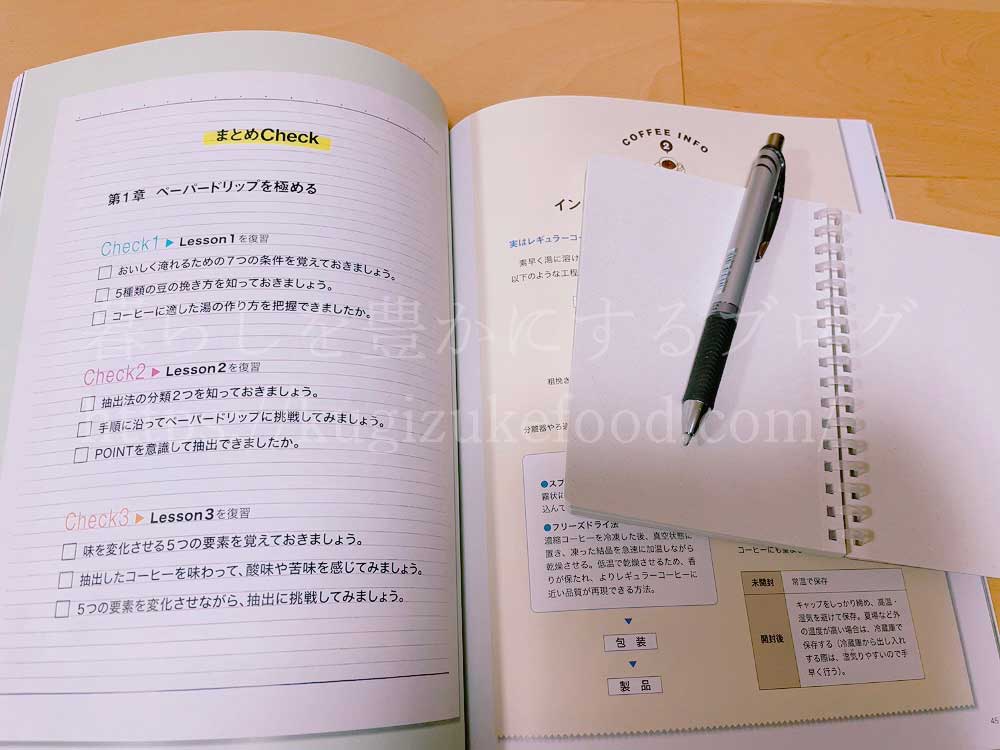 まとめCheck
第1章 ペーパードリップを極める
Check1▶Lesson1を復習
□ おいしく淹れるための7つの条件を覚えておきましょう。
□ 5種類の豆の挽き方を知っておきましょう。
□ コーヒーに適した湯の作り方を把握できましたか。
Check2▶Lesson2を復習
□ 抽出法の分類2つを知っておきましょう。
□ 手順に沿ってペーパードリップに挑戦してみましょう。
□ POINTを意識して抽出できましたか。
Check3▶Lesson3を復習
□ 味を変化させる5つの要素を覚えておきましょう。
□ 抽出したコーヒーを味わって、酸味や苦味を感じてみましょう。
□ 5つの要素を変化させながら、抽出に挑戦してみましょう。
COFFEE INFO
2
イン
実はレギュラーコー
素早く湯に溶け
以下のような工程
粗挽き
分離器やろ過
●スプ
霧状に
込んで
●フリーズドライ法
濃縮コーヒーを冷凍した後、真空状態に
置き、凍った結晶を急速に加温しながら
乾燥させる。低温で乾燥させるため、香
りが保たれ、よりレギュラーコーヒーに
近い品質が再現できる方法。
▼
包装
▼
製品
未開封 常温で保存
開封後 キャップをしっかり締め、高温・
湿気を避けて保存。夏場など外
の温度が高い場合は、冷蔵庫で
保存する（冷蔵庫から出し入れ
する際は、湿気りやすいので手
早く行う）。
45
暮らしを豊かにするブログ
kugizukefood.com/